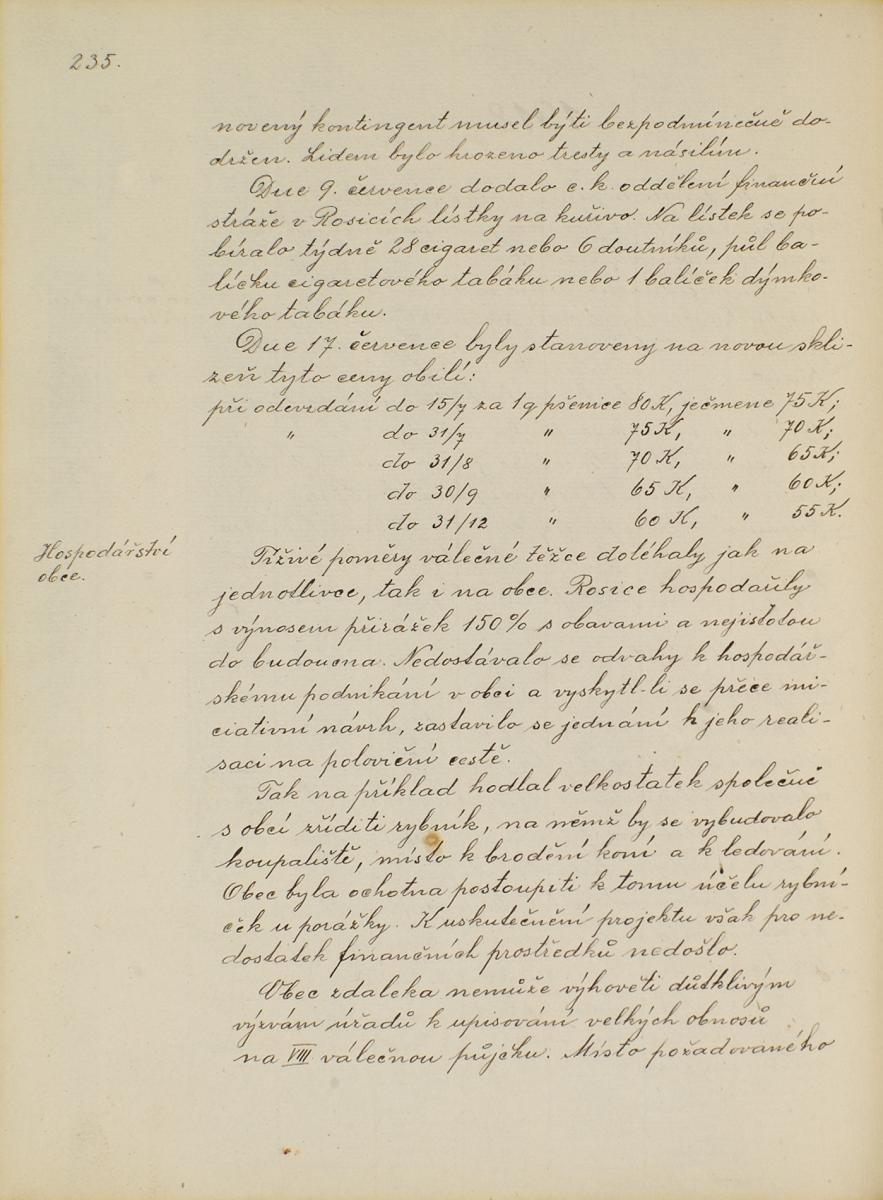 235.
novený kontingent musel býti bezpodmínečně do-
držen. Lidem bylo hrozeno tresty a násilím.
Dne 9. července dodalo c. k. oddělení finanční
stráže v Rosicích lístky na kuřivo. Na lístek se po-
bíralo týdně 28 cigaret nebo 6 doutníků, půl ba-
líčku cigaretového tabáku nebo 1 balíček dýmko-
vého tabáku.
Dne 17. července byly stanoveny na novou skli-
zeň tyto ceny obilí:
při odevzdání do 15/7 za 1 q pšenice 80 K, ječmene 75 K;
" do 31/7 " 75 K, " 70 K;
do 31/8 " 70 K, " 65 K;
do 30/9 " 65 K, " 60 K;
do 31/12 " 60 K, " 55 K.
Hospodářství
obce.
Tíživé poměry válečné těžce doléhaly jak na
jednotlivce, tak i na obce. Rosice hospodařily
s výnosem přirážek 150% s obavami a nejistotou
do budoucna. Nedostávalo se odvahy k hospodář-
skému podnikání v obci a vyskytl-li se přece ini-
ciativní návrh, zastavilo se jednání k jeho reali-
saci na poloviční cestě.
Tak na příklad hodlal velkostatek společně
s obcí zříditi rybník, na němž by se vybudovalo
koupaliště, místo k brodění koní a k ledování.
Obec byla ochotna postoupiti k tomu účelu rybní-
ček u porážky. K uskutečnění projektu však pro ne-
dostatek finančních prostředků nedošlo.
Obec zdaleka nemůže výhověti důtklivým
výzvám úřadů k upisování velkých obnosů
na VIII válečnou půjčku. Místo požadovaného